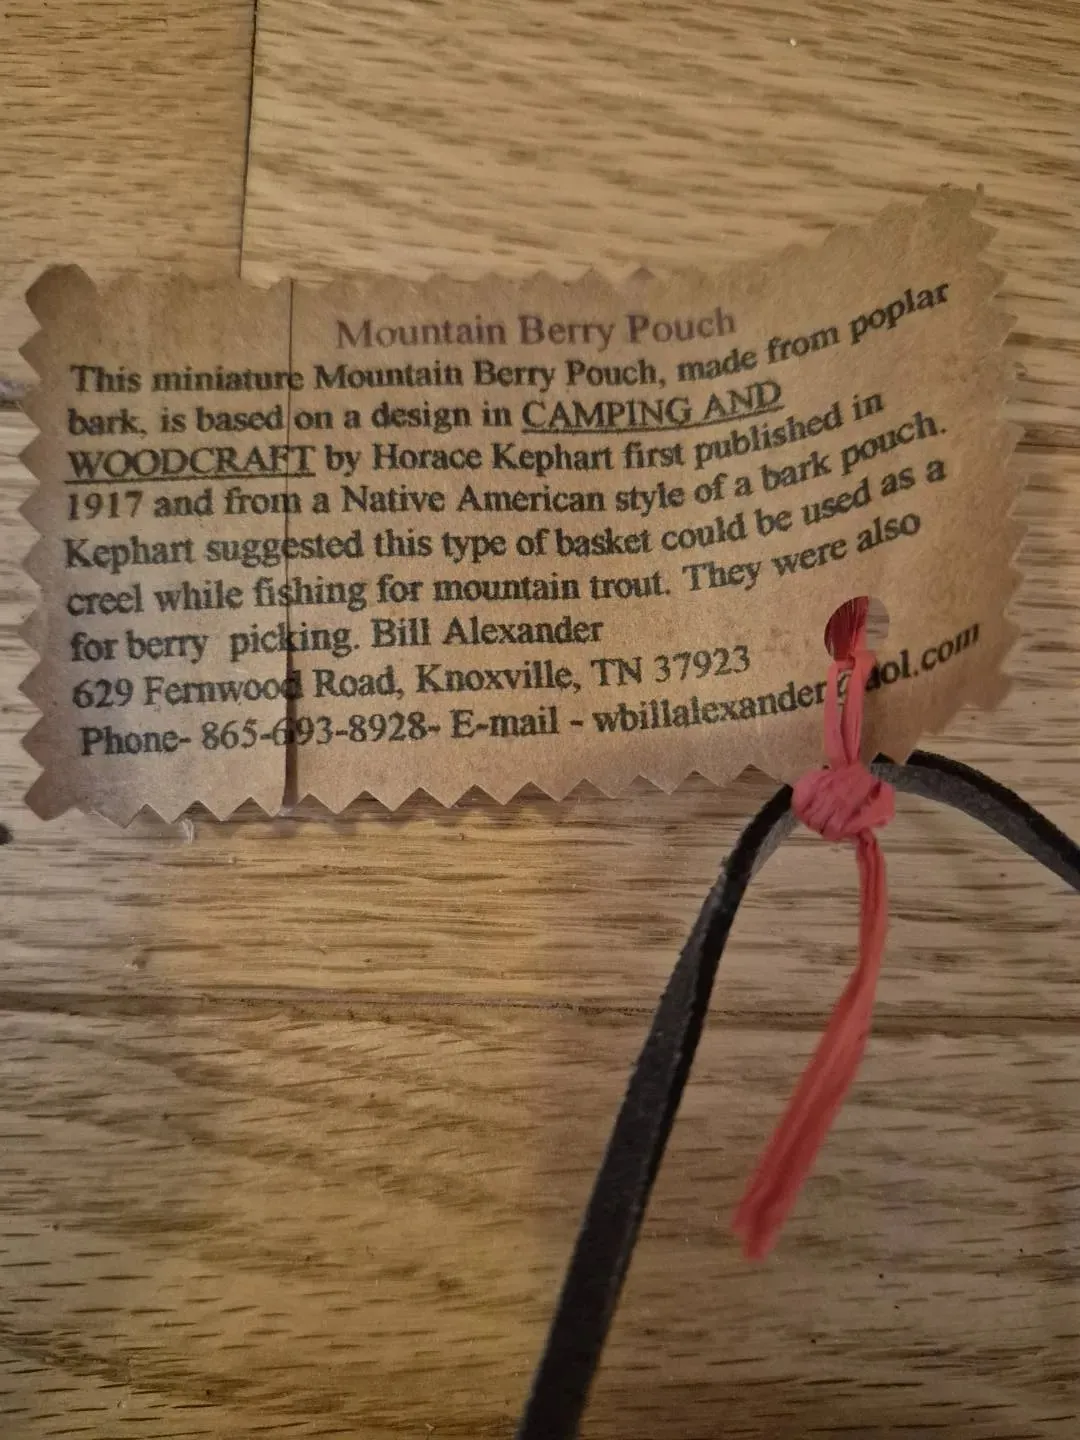 Mountain Berry Pouch
This miniature Mountain Berry Pouch, made from poplar
bark, is based on a design in CAMPING AND
WOODCRAFT by Horace Kephart first published in
1917 and from a Native American style of a bark pouch.
Kephart suggested this type of basket could be used as a
creel while fishing for mountain trout. They were also
for berry picking. Bill Alexander
629 Fernwood Road, Knoxville, TN 37923
Phone- 865-693-8928- E-mail - wbillalexander@aol.com